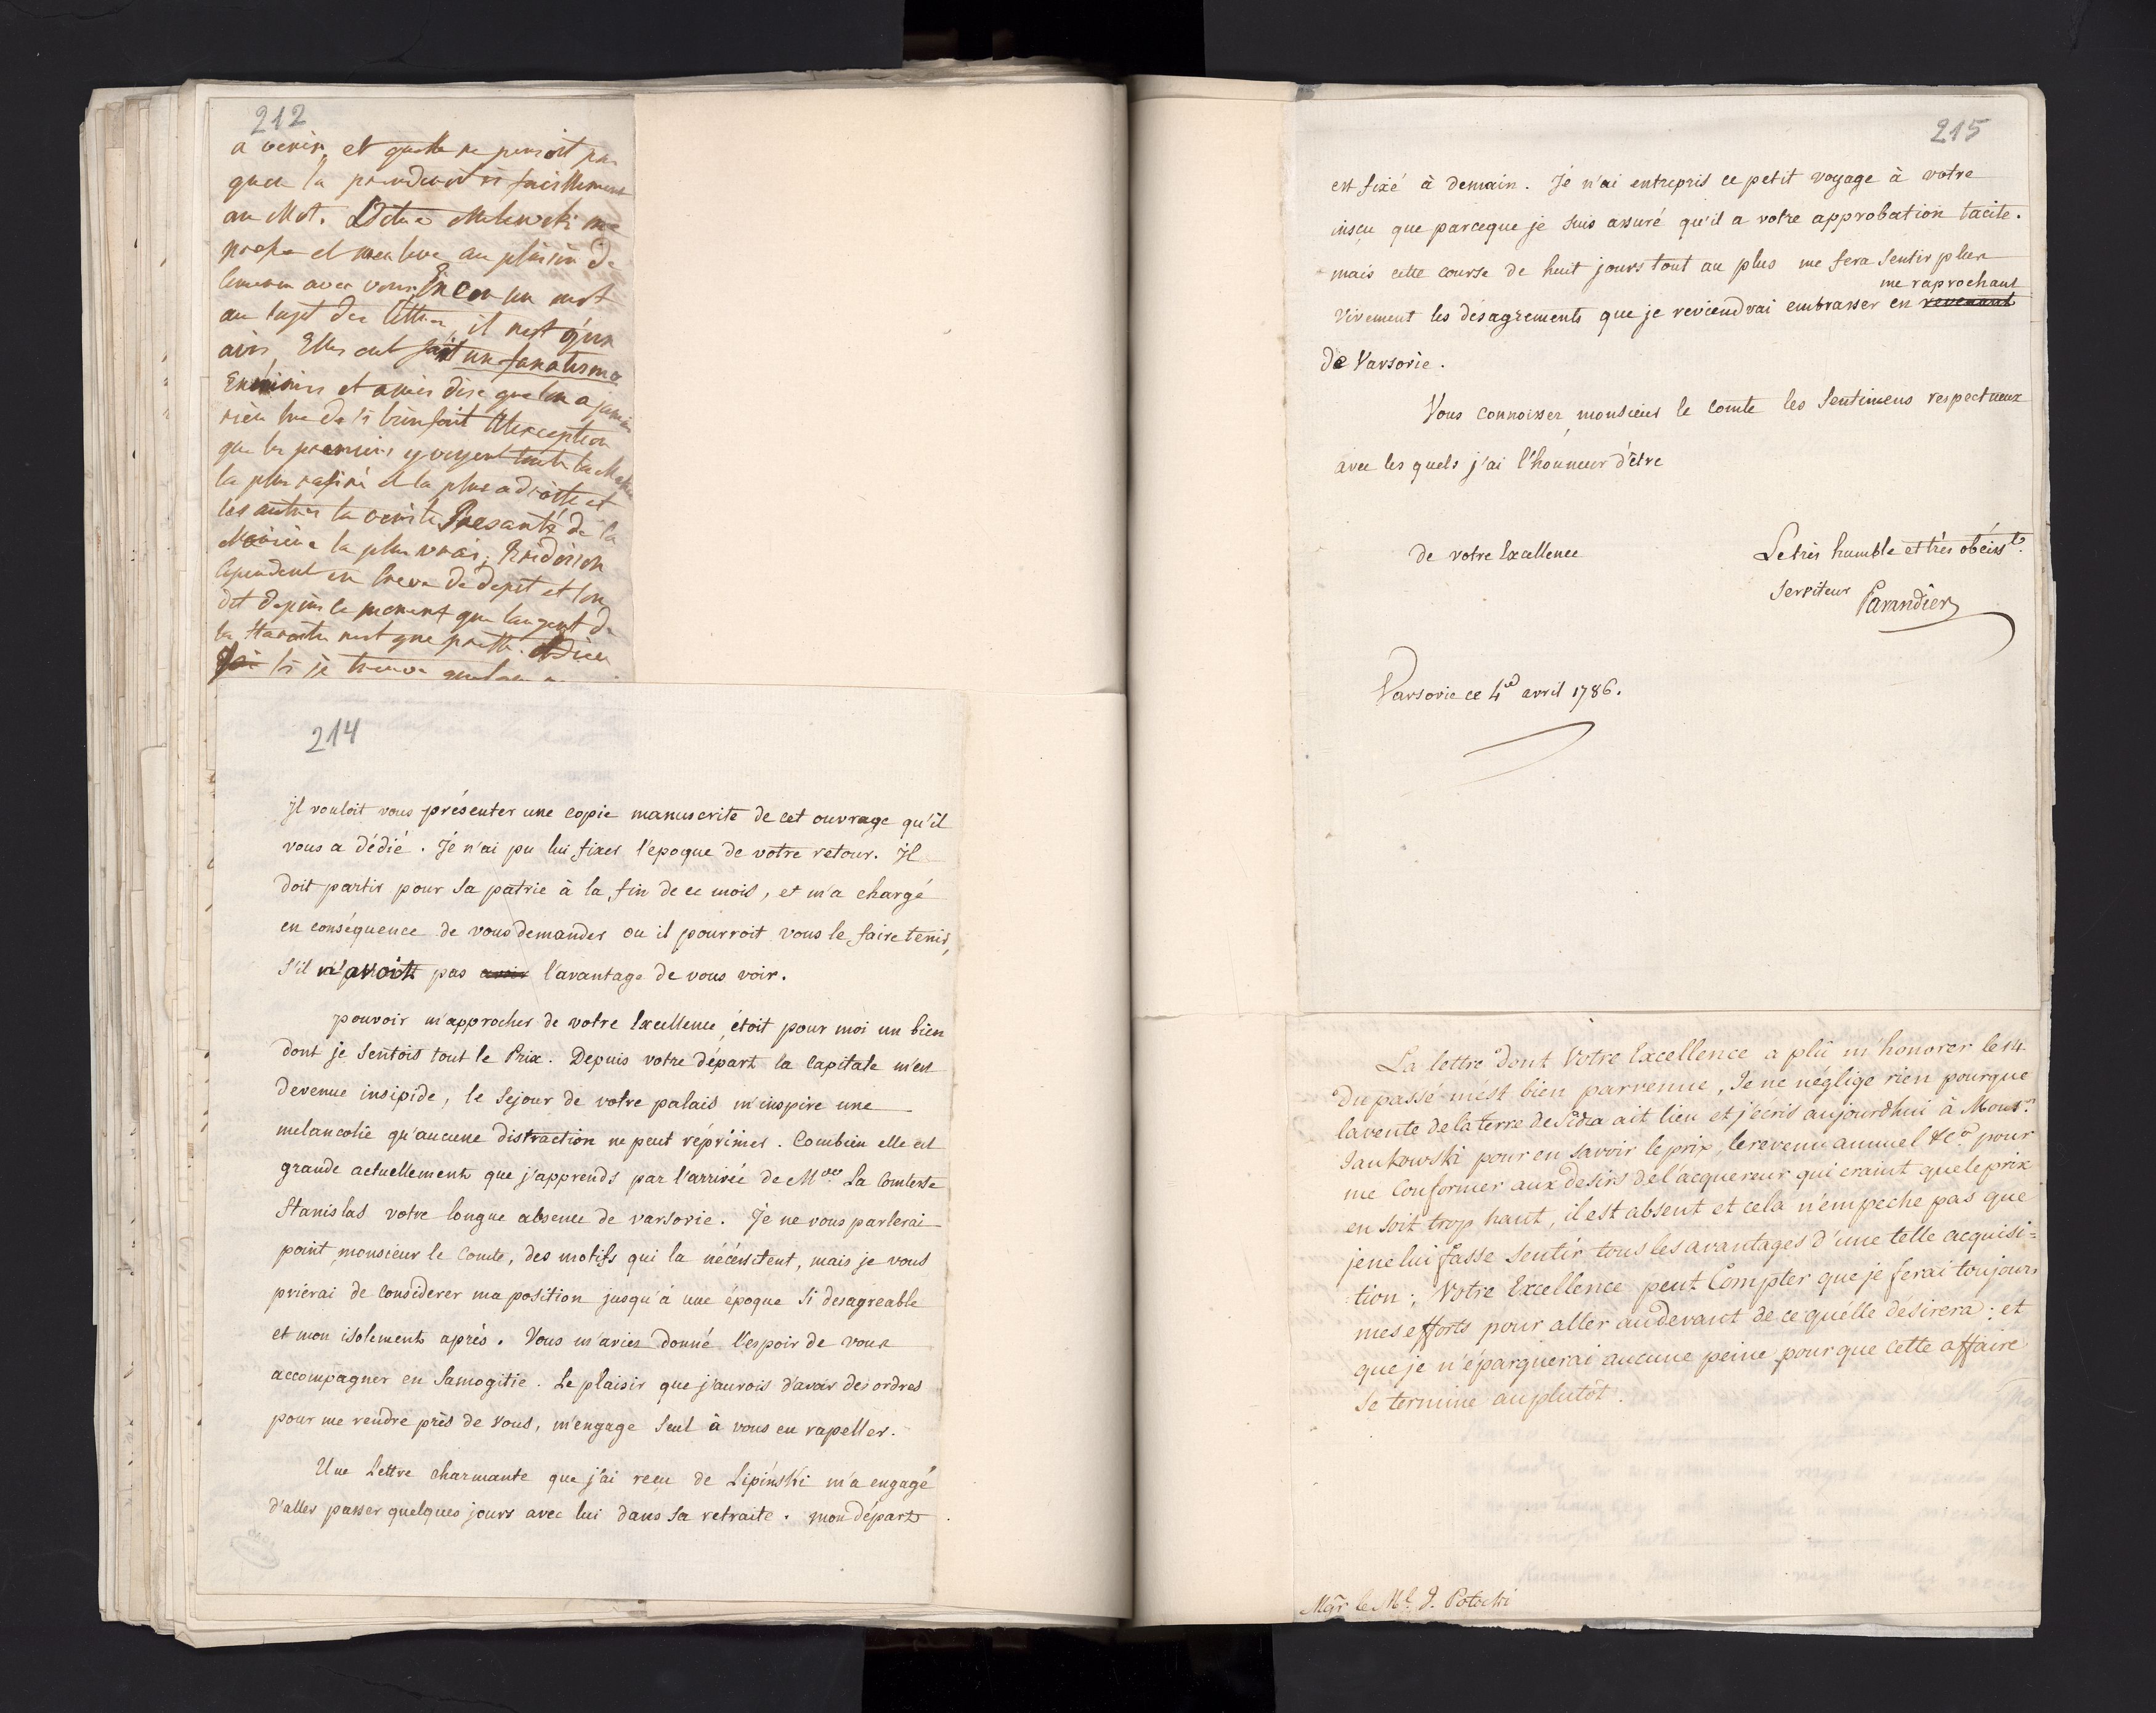 212
a venir, et quelle ne pensoit pas
quon la prendroit si facillement
au Mot.
au sujet des lettres, il nest qu'un
avis, Elles ont fait un fanatisme
Ennimis et amis dise que lon a jamais
rien lue de si bien fait a lexception
que les premiers y voyent toute la
la plus rafiné et la plus adroitte et
les autres la verité
la plus vraie,
cependent en creve de depit et lon
dit depuis ce moment que largent de
la nest que pretté. Adieu
si je trouve
214
Il vouloit vous présenter une copie manuscrite de cet ouvrage qu'il
vous a dédié. Je n'ai pu lui fixer l'époque de votre retour. Il
doit partir pour sa patrie à la fin de ce mois, et m'a chargé
en conséquence de vous demander ou il pourroit vous le faire tenir,
s'il n'avoit pas avoir l'avantage de vous voir.
pouvoir m'approcher de votre Excellence, étoit pour moi un bien
dont je sentois tout le Prix. Depuis votre départ la Capitale m'est
devenue insipide, le sejour de votre palais m'inspire une
melancolie qu'aucune distraction ne peut réprimer. Combien elle est
grande actuellement que j'apprends par l'arrivée de Mde La Comtesse
Stanislas votre longue absence de varsovie. Je ne vous parlerai
point monsieur le Comte, des motifs qui la nécéssitent, mais je vous
prierai de considerer ma position jusqu'à une époque si desagreable
et mon isolement après. Vous m'aviez donné l'espoir de vous
accompagner en Samogitie. Le plaisir que j'aurois d'avoir des ordres
pour me rendre près de vous, m'engage seul à vous en rapeller.
Une Lettre charmante que j'ai recu de Lipiński m'a engagé
d'aller passer quelques jours avec lui dans sa retraite. mon départ
215
est fixé à demain. Je n'ai entrepris ce petit voyage à votre
insçu que parceque je suis assuré qu'il a votre approbation tacite.
mais cette course de huit jours tout au plus me fera sentir plus
me raprochant
vivement les désagrements que je reviendrai embrasser en revenant
de Varsovie.
Vous connoissez, monsieur le Comte les Sentimens respectueux
avec les quels j'ai l'honneur d'être
de votre Excellence
Le très humble et très obéisst.
Serviteur Parandier
Varsovie ce 4d avril 1786.
La lettre dont Votre Excellence a plû m'honorer le 14
du passé m'est bien parvenue, Je ne néglige rien pourque
la vente de la terre de Sidra ait lieu et j'écris aujourdhui à Monsr.
Jankowski pour en savoir le prix, le revenu annuel &ca. pour
me Conformer aux desirs de l'acquereur qui craint que le prix
en soit trop haut, il est absent et cela n'empeche pas que
je ne lui fasse sentir tous les avantages d'une telle acquisi=
=tion; Votre Excellence peut Compter que je ferai toujours
mes efforts pour aller audevant de ce qu'elle desirera; et
que je n'épargnerai aucune peine pour que cette affaire
se termine auplutôt.
Mgr le Ml. J. Potocki